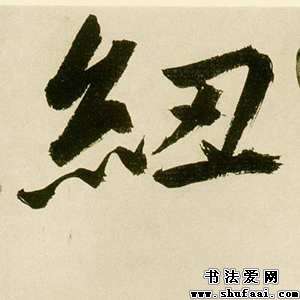 紐
书法爱网
www.shufaai.com